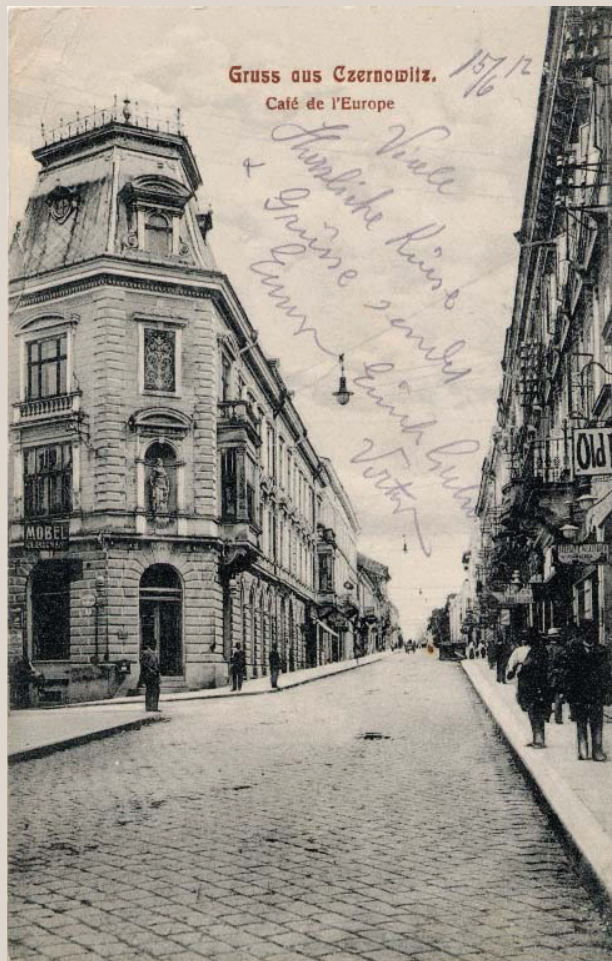 Gruss aus Czernowitz.
Café de l'Europe
15/6 12
Viele
Herzliche Küsse
& Grüsse sendet
Euer
Victor
MÖBEL
Old